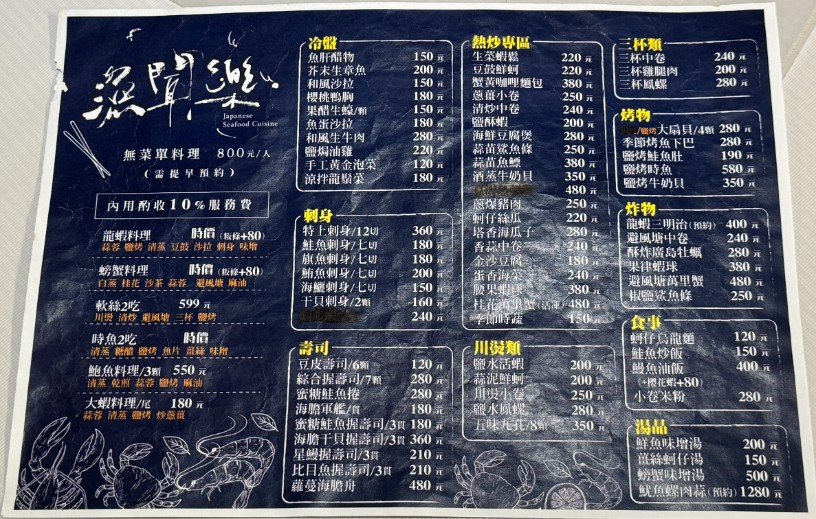 漁聞樂
Japanese
Seafood Cuisine
無菜單料理 800元/人
(需提早預約)
內用酌收10%服務費
龍蝦料理 時價(粄條+80)
蒜蓉 鹽烤 清蒸 豆鼓 沙拉 刺身 味增
螃蟹料理 時價(粄條+80)
白蒸 桂花 沙茶 蒜蓉 避風塘 麻油
軟絲2吃 599元
川燙 清炒 避風塘 三杯 鹽烤
時魚2吃 時價
清蒸 糖醋 鹽烤 魚片 薑絲 味增
鮑魚料理/3顆 550元
清蒸 乾煎 蒜蓉 鹽烤 麻油
大蝦料理/尾 180元
蒜蓉 清蒸 鹽烤 炒蔥薑
冷盤
魚肝醋物 150元
芥末生章魚 200元
和風沙拉 150元
櫻桃鴨胸 180元
果醋生蠔/顆 150元
魚蛋沙拉 180元
和風生牛肉 280元
鹽焗油雞 220元
手工黃金泡菜 120元
涼拌龍鬚菜 180元
刺身
特上刺身/12切 360元
鮭魚刺身/七切 180元
旗魚刺身/七切 180元
鮪魚刺身/七切 200元
海鱺刺身/七切 150元
干貝刺身/2顆 160元
240元
壽司
豆皮壽司/6顆 120元
綜合握壽司/7顆 280元
蜜糖鮭魚捲 280元
海膽軍艦/貫 180元
蜜糖鮭魚握壽司/3貫 180元
海膽干貝握壽司/3貫 360元
星鰻握壽司/3貫 210元
比目魚握壽司/3貫 210元
蘿蔓海膽舟 480元
熱炒專區
生菜蝦鬆 220元
豆鼓鮮蚵 220元
蟹黃咖哩麵包 380元
蔥薑小卷 250元
清炒中卷 240元
鹽酥蝦 200元
海鮮豆腐煲 280元
蒜苗鯊魚條 250元
蒜苗魚鰾 380元
酒蒸牛奶貝 350元
480元
蔥爆豬肉 250元
蚵仔絲瓜 220元
塔香海瓜子 280元
香蒜中卷 240元
金沙豆腐 180元
蛋香海菜 240元
腰果蝦球 380元
桂花萬里蟹(活凍) 480元
季節時蔬 150元
川燙類
鹽水活蝦 200元
蒜泥鮮蚵 200元
川燙小卷 250元
鹽水鳳螺 280元
五味九孔/8顆 350元
三杯類
三杯中卷 240元
三杯雞腿肉 200元
三杯鳳螺 280元
烤物
/鹽烤大扇貝/4顆 280元
季節烤魚下巴 280元
鹽烤鮭魚肚 190元
鹽烤時魚 580元
鹽烤牛奶貝 350元
炸物
龍蝦三明治(預約) 400元
避風塘中卷 240元
酥炸廣島牡蠣 280元
果律蝦球 380元
避風塘萬里蟹 480元
椒鹽鯊魚條 250元
食事
蚵仔烏龍麵 120元
鮭魚炒飯 150元
鰻魚油飯 400元
(+櫻花蝦+80)
小卷米粉 280元
湯品
鮮魚味增湯 200元
薑絲蚵仔湯 150元
螃蟹味增湯 500元
魷魚螺肉蒜(預約) 1280元